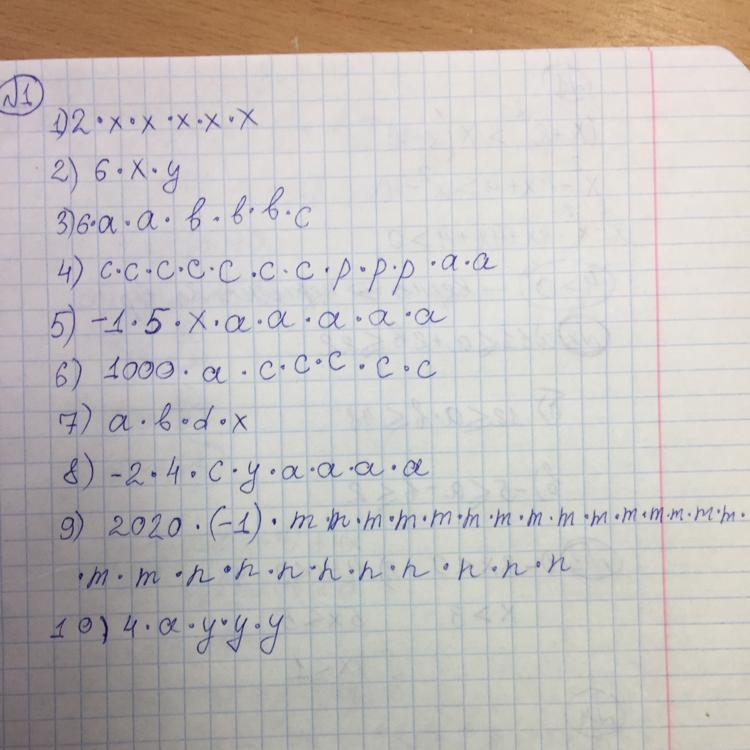 №1
1) 2·x·x·x·x·x
2) 6·x·y
3) 6·a·a·b·b·b·c
4) c·c·c·c·c·c·c·p·p·p·a·a
5) -1·5·x·a·a·a·a·a
6) 1000·a·c·c·c·c·c
7) a·b·d·x
8) -2·4·c·y·a·a·a·a
9) 2020·(-1)·m·m·m·m·m·m·m·m·m·m·m·m·m·m·m·
·m·m·n·n·n·n·n·n·n·n·n
10) 4·a·y·y·y